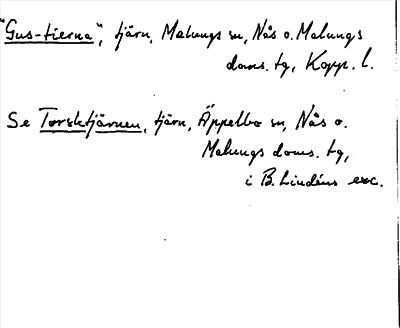 "Gus-tierna", tjärn, Malungs sn, Nås o. Malungs
doms. tg, Kopp. l.
Se Torsktjärnen, tjärn, Äppelbo sn, Nås o.
Malungs doms. tg,
i B. Lindéns exc.